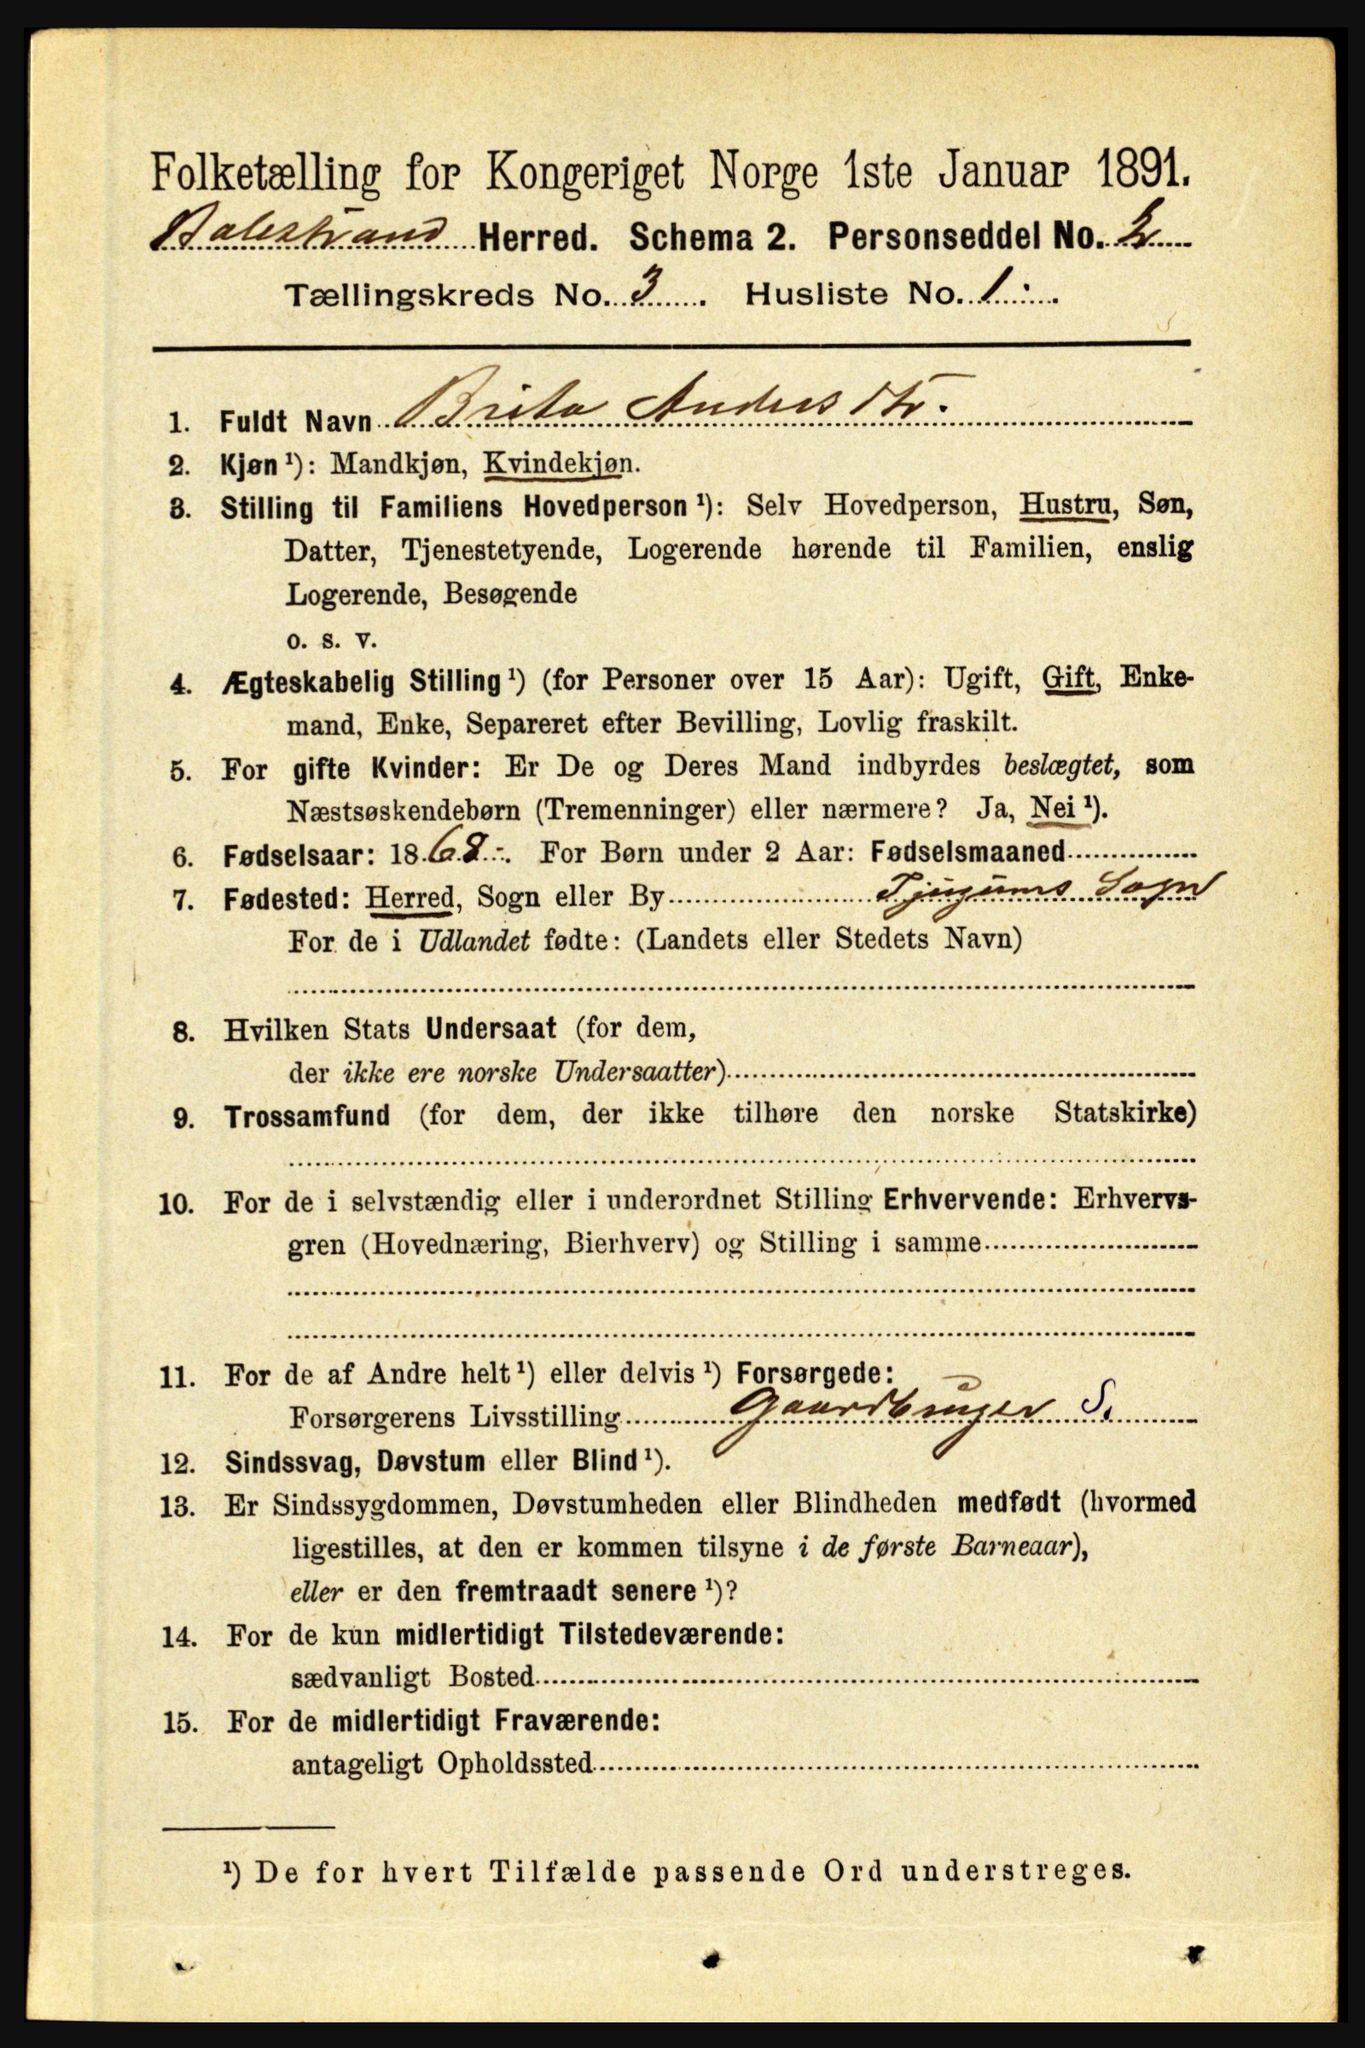 Folketælling for Kongeriget Norge 1ste Januar 1891.
Balestrand Herred. Schema 2. Personseddel No. 2
Tællingskreds No. 3. Husliste No. 1.
1. Fuldt Navn Brita Andersdtr.
2. Kjøn ¹): Mandkjøn, Kvindekjøn.
3. Stilling til Familiens Hovedperson ¹): Selv Hovedperson, Hustru, Søn,
Datter, Tjenestetyende, Logerende hørende til Familien, enslig
Logerende, Besøgende
o. s. v.
4. Ægteskabelig Stilling ¹) (for Personer over 15 Aar): Ugift, Gift, Enke-
mand, Enke, Separeret efter Bevilling, Lovlig fraskilt.
5. For gifte Kvinder: Er De og Deres Mand indbyrdes beslægtet, som
Næstsøskendebørn (Tremenninger) eller nærmere? Ja, Nei ¹).
6. Fødselsaar: 1868. For Børn under 2 Aar: Fødselsmaaned
7. Fødested: Herred, Sogn eller By Tjugums Sogn
For de i Udlandet fødte: (Landets eller Stedets Navn)
8. Hvilken Stats Undersaat (for dem,
der ikke ere norske Undersaatter)
9. Trossamfund (for dem, der ikke tilhøre den norske Statskirke)
10. For de i selvstændig eller i underordnet Stilling Erhvervende: Erhvervs-
gren (Hovednæring, Bierhverv) og Stilling i samme
11. For de af Andre helt ¹) eller delvis ¹) Forsørgede:
Forsørgerens Livsstilling Gaardbruger S.
12. Sindssvag, Døvstum eller Blind ¹).
13. Er Sindssygdommen, Døvstumheden eller Blindheden medfødt (hvormed
ligestilles, at den er kommen tilsyne i de første Barneaar),
eller er den fremtraadt senere ¹)?
14. For de kun midlertidigt Tilstedeværende:
sædvanligt Bosted
15. For de midlertidigt Fraværende:
antageligt Opholdssted
¹) De for hvert Tilfælde passende Ord understreges.